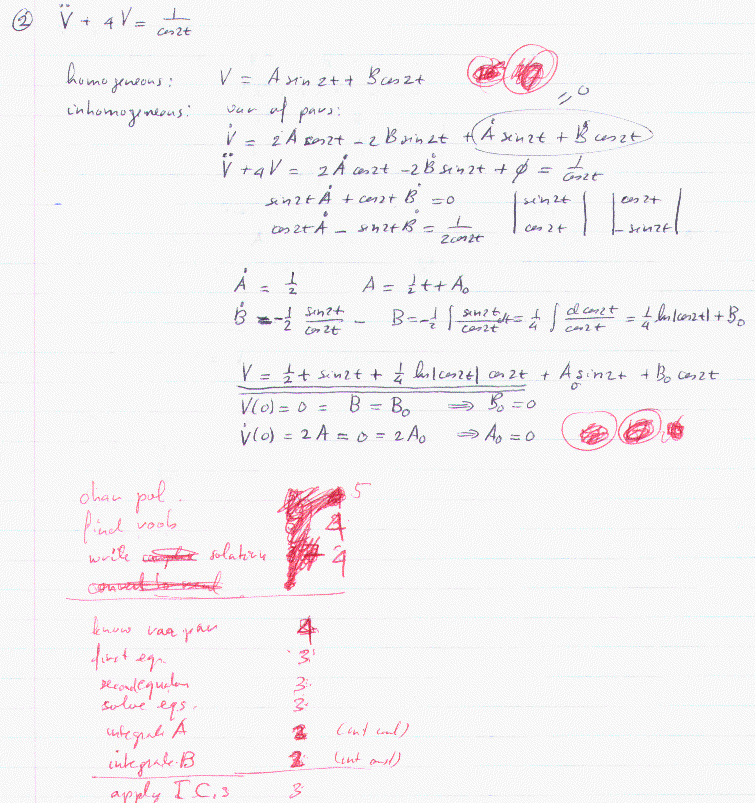 ② V̈ + 4V = 1/cos2t
homogeneous: V = A sin 2t + B cos 2t
inhomogeneous: var of pars: = 0
V̇ = 2A cos2t - 2B sin2t + Ȧ sin2t + Ḃ cos2t
V̈ + 4V = 2Ȧ cos2t - 2Ḃ sin2t + ϕ = 1/cos2t
sin2t Ȧ + cos2t Ḃ = 0 |sin2t| |cos2t|
cos2t Ȧ - sin2t Ḃ = 1/2cos2t |cos2t| |-sin2t|
Ȧ = 1/2 A = 1/2 t + A₀
Ḃ = -1/2 sin2t/cos2t - B = -1/2 ∫ sin2t/cos2t dt = 1/4 ∫ d cos2t/cos2t = 1/4 ln|cos2t| + B₀
V = 1/2 t sin2t + 1/4 ln|cos2t| cos2t + A₀ sin2t + B₀ cos2t
V(0) = 0 = B = B₀ ⟹ B₀ = 0
V̇(0) = 2A = 0 = 2A₀ ⟹ A₀ = 0
char pol. 5
find roots 4
write solution 4
convert to real
know var par 4
first eqn. 3
second equation 3
solve eqs. 3
integrate A 2
integrate B 2
apply I.C.s 3